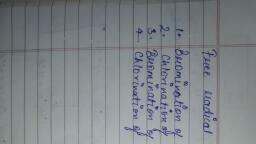 Free radical
1. Bromination of
2. Chlorination of
3. Bromination of
4. Chlorination of